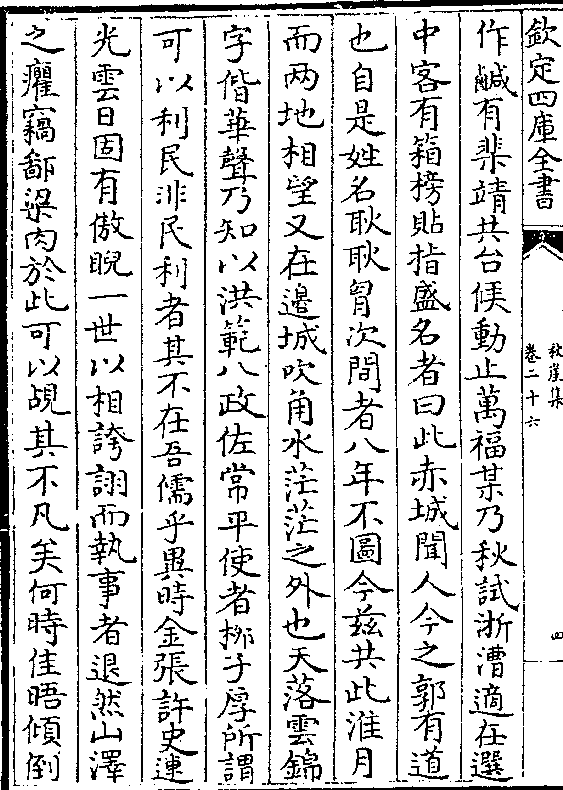 欽定四庫全書
秋崖集
卷二十六
四
作鹹有棐靖共台候動止萬福某乃秋試浙漕適在選
中客有箱榜貼指盛名者曰此赤城聞人今之郭有道
也自是姓名耿耿胷次間者八年不圖今兹共此淮月
而两地相望又在邉城吹角水茫茫之外也天落雲錦
字偕華聲乃知以洪範八政佐常平使者栁子厚所謂
可以利民非民利者其不在吾儒乎異時金張許史連
光雲日固有傲睨一世以相誇詡而執事者退然山澤
之癯竊鄙梁肉於此可以覘其不凡矣何時佳晤傾倒